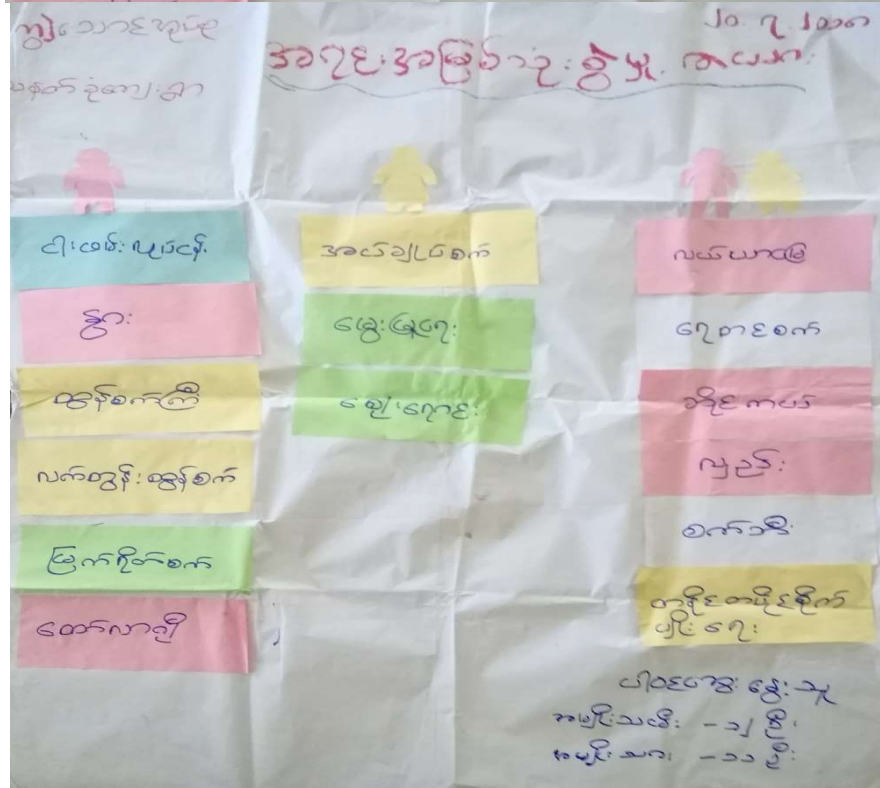 ကျွဲသောင်အုပ်စု
၂၀.၇.၂၀၁၈
အရင်းအမြစ်သုံးစွဲမှု ဇယား
ကျေးရွာ
ငါးဖမ်းလုပ်ငန်း
နွား
ထွန်စက်ကြီး
လက်တွန်းထွန်စက်
မြက်ရိတ်စက်
ထော်လာဂျီ
အပ်ချုပ်စက်
မွေးမြူရေး
ဈေးရောင်း
လယ်ယာမြေ
ရေတင်စက်
ဆိုင်ကယ်
လှည်း
စက်ဘီး
တစ်နိုင်တစ်ပိုင်စိုက်
ပျိုးရေး
ပါဝင်ဆွေးနွေးသူ
အမျိုးသမီး - ၁၂ ဦး
အမျိုးသား - ၁၁ ဦး